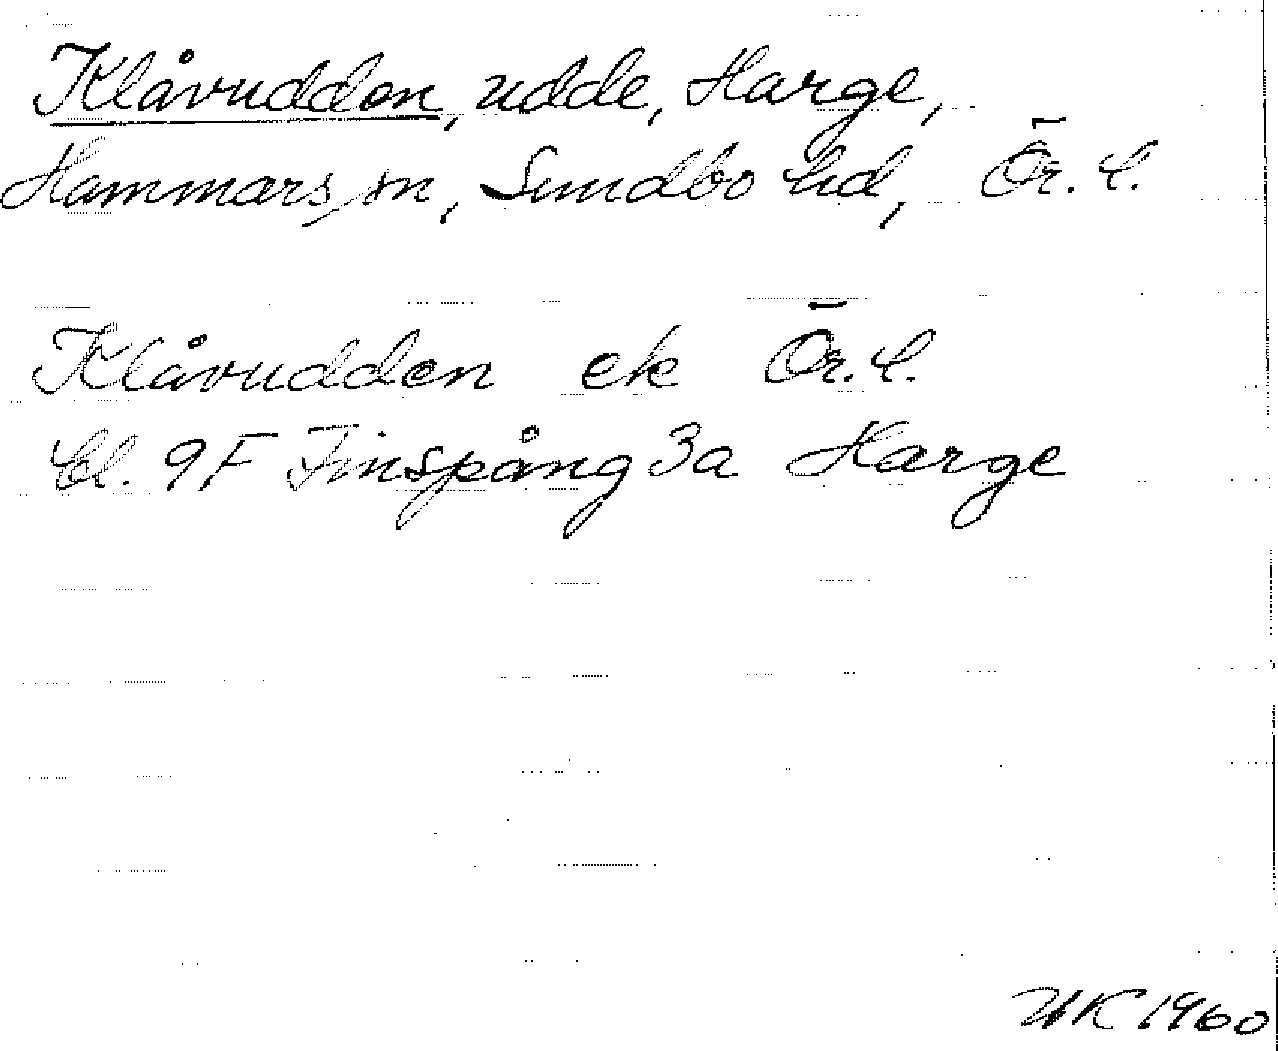 Klåvudden, udde, Harge,
Hammars sn, Sundbo hd, Ör. l.
Klåvudden ek Ör. l.
bl. 9F Finspång 3a Harge
UK 1960